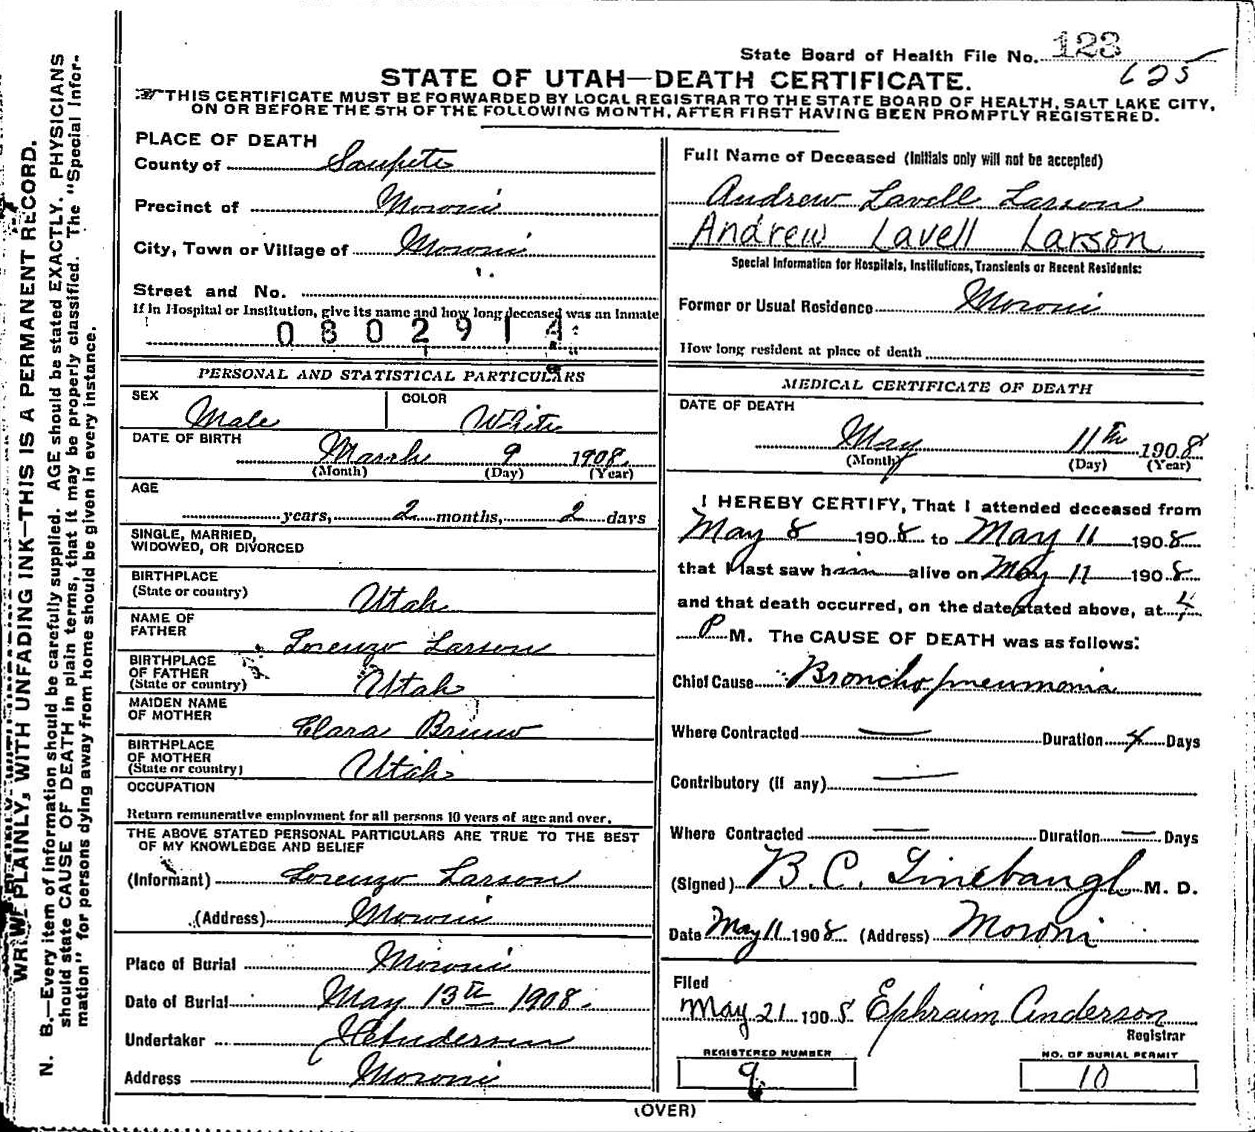 State Board of Health File No. 123
625
STATE OF UTAH—DEATH CERTIFICATE.
THIS CERTIFICATE MUST BE FORWARDED BY LOCAL REGISTRAR TO THE STATE BOARD OF HEALTH, SALT LAKE CITY,
ON OR BEFORE THE 5TH OF THE FOLLOWING MONTH, AFTER FIRST HAVING BEEN PROMPTLY REGISTERED.
WRITE PLAINLY, WITH UNFADING INK—THIS IS A PERMANENT RECORD.
N. B.—Every item of information should be carefully supplied. AGE should be stated EXACTLY. PHYSICIANS
should state CAUSE OF DEATH in plain terms, that it may be properly classified. The "Special Infor-
mation" for persons dying away from home should be given in every instance.
PLACE OF DEATH
County of Sanpete
Precinct of Moroni
City, Town or Village of Moroni
Street and No.
If in Hospital or Institution, give its name and how long deceased was an Inmate
0802914
PERSONAL AND STATISTICAL PARTICULARS
SEX Male COLOR White
DATE OF BIRTH March 9 1908
(Month) (Day) (Year)
AGE
years, 2 months, 2 days
SINGLE, MARRIED,
WIDOWED, OR DIVORCED
BIRTHPLACE
(State or country) Utah
NAME OF
FATHER Lorenzo Larson
BIRTHPLACE
OF FATHER
(State or country) Utah
MAIDEN NAME
OF MOTHER Clara
BIRTHPLACE
OF MOTHER
(State or country) Utah
OCCUPATION
Return remunerative employment for all persons 10 years of age and over.
THE ABOVE STATED PERSONAL PARTICULARS ARE TRUE TO THE BEST
OF MY KNOWLEDGE AND BELIEF
(Informant) Lorenzo Larson
(Address) Moroni
Place of Burial Moroni
Date of Burial May 13th 1908.
Undertaker
Address Moroni
Full Name of Deceased (Initials only will not be accepted)
Andrew Lavell Larson
Andrew Lavell Larson
Special Information for Hospitals, Institutions, Transients or Recent Residents:
Former or Usual Residence Moroni
How long resident at place of death
MEDICAL CERTIFICATE OF DEATH
DATE OF DEATH
May 11th 1908
(Month) (Day) (Year)
I HEREBY CERTIFY, That I attended deceased from
May 8 1908 to May 11 1908
that I last saw him alive on May 11 1908
and that death occurred, on the date stated above, at 4
P M. The CAUSE OF DEATH was as follows:
Chief Cause Broncho pneumonia
Where Contracted — Duration 4 Days
Contributory (if any) —
Where Contracted — Duration — Days
(Signed) B. C. M. D.
Date May 11 1908 (Address) Moroni
Filed
May 21 1908 Ephraim Anderson
Registrar
REGISTERED NUMBER
9
NO. OF BURIAL PERMIT
10
(OVER)